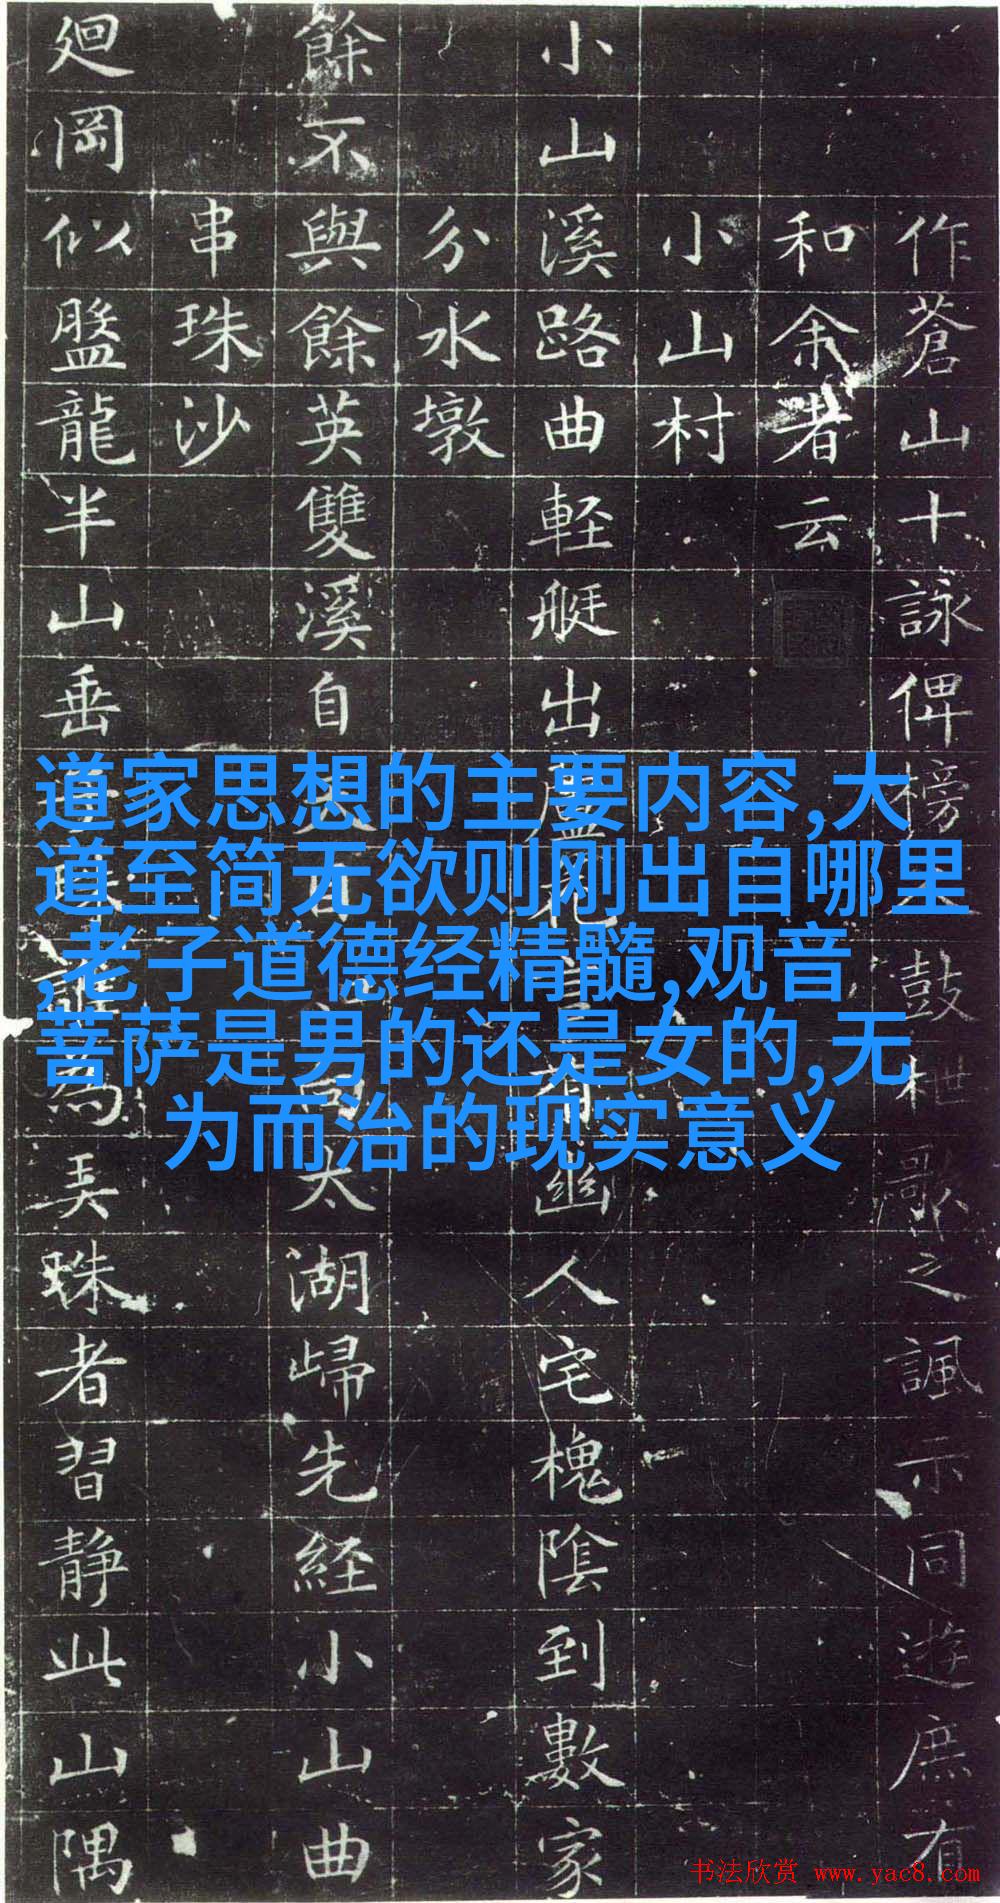 作蒼山十詠俾榜鼓枻歌之諷示同遊庶有
和余者云
小山村
小山溪路曲軽艇出蘆花有幽人宅槐陰到數家
分水墩
餘不與餘英雙溪自向太湖歸先経小山曲
串珠沙
廻岡似盤龍半山垂誰為弄珠者習靜此山隅
道家思想的主要内容,大
道至简无欲则刚出自哪里
,老子道德经精髓,观音
菩萨是男的还是女的,无
为而治的现实意义
书法欣赏 www.yac8.com